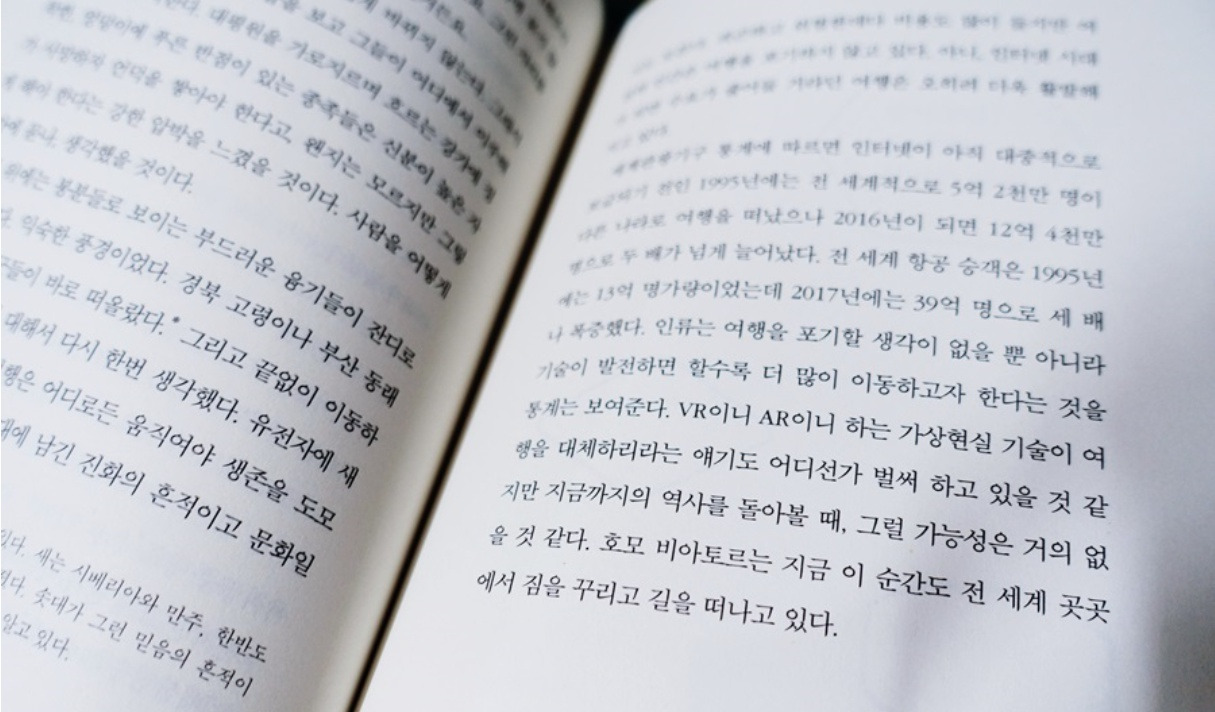 바뀌지 않는다. 그래서
을 보고 그들이 어디에서 이주해
한다. 대평원을 가로지르며 흐르는 강가에 정
하면, 엉덩이에 푸른 반점이 있는 종족들은 신분이 높은 자
가 사망하자 언덕을 쌓아야 한다고, 왠지는 모르지만 그렇
게 해야 한다는 강한 압박을 느꼈을 것이다. 사람을 어떻게
끝나, 생각했을 것이다.
위에는 봉분들로 보이는 부드러운 융기들이 잔디로
익숙한 풍경이었다. 경북 고령이나 부산 동래
들이 바로 떠올랐다.* 그리고 끝없이 이동하
대해서 다시 한번 생각했다. 유전자에 새
행은 어디로든 움직여야 생존을 도모
대에 남긴 진화의 흔적이고 문화일
있다. 새는 시베리아와 만주, 한반도
솟대가 그런 믿음의 흔적이
알고 있다.
비용도 많이 들지만 여
여행을 포기하지 않고 있다. 아니, 인터넷 시대
수요가 줄어들 거라던 여행은 오히려 더욱 활발해
지고 있다.
세계관광기구 통계에 따르면 인터넷이 아직 대중적으로
보급되기 전인 1995년에는 전 세계적으로 5억 2천만 명이
다른 나라로 여행을 떠났으나 2016년이 되면 12억 4천만
명으로 두 배가 넘게 늘어났다. 전 세계 항공 승객은 1995년
에는 13억 명가량이었는데 2017년에는 39억 명으로 세 배
나 폭증했다. 인류는 여행을 포기할 생각이 없을 뿐 아니라
기술이 발전하면 할수록 더 많이 이동하고자 한다는 것을
통계는 보여준다. VR이니 AR이니 하는 가상현실 기술이 여
행을 대체하리라는 얘기도 어디선가 벌써 하고 있을 것 같
지만 지금까지의 역사를 돌아볼 때, 그럴 가능성은 거의 없
을 것 같다. 호모 비아토르는 지금 이 순간도 전 세계 곳곳
에서 짐을 꾸리고 길을 떠나고 있다.